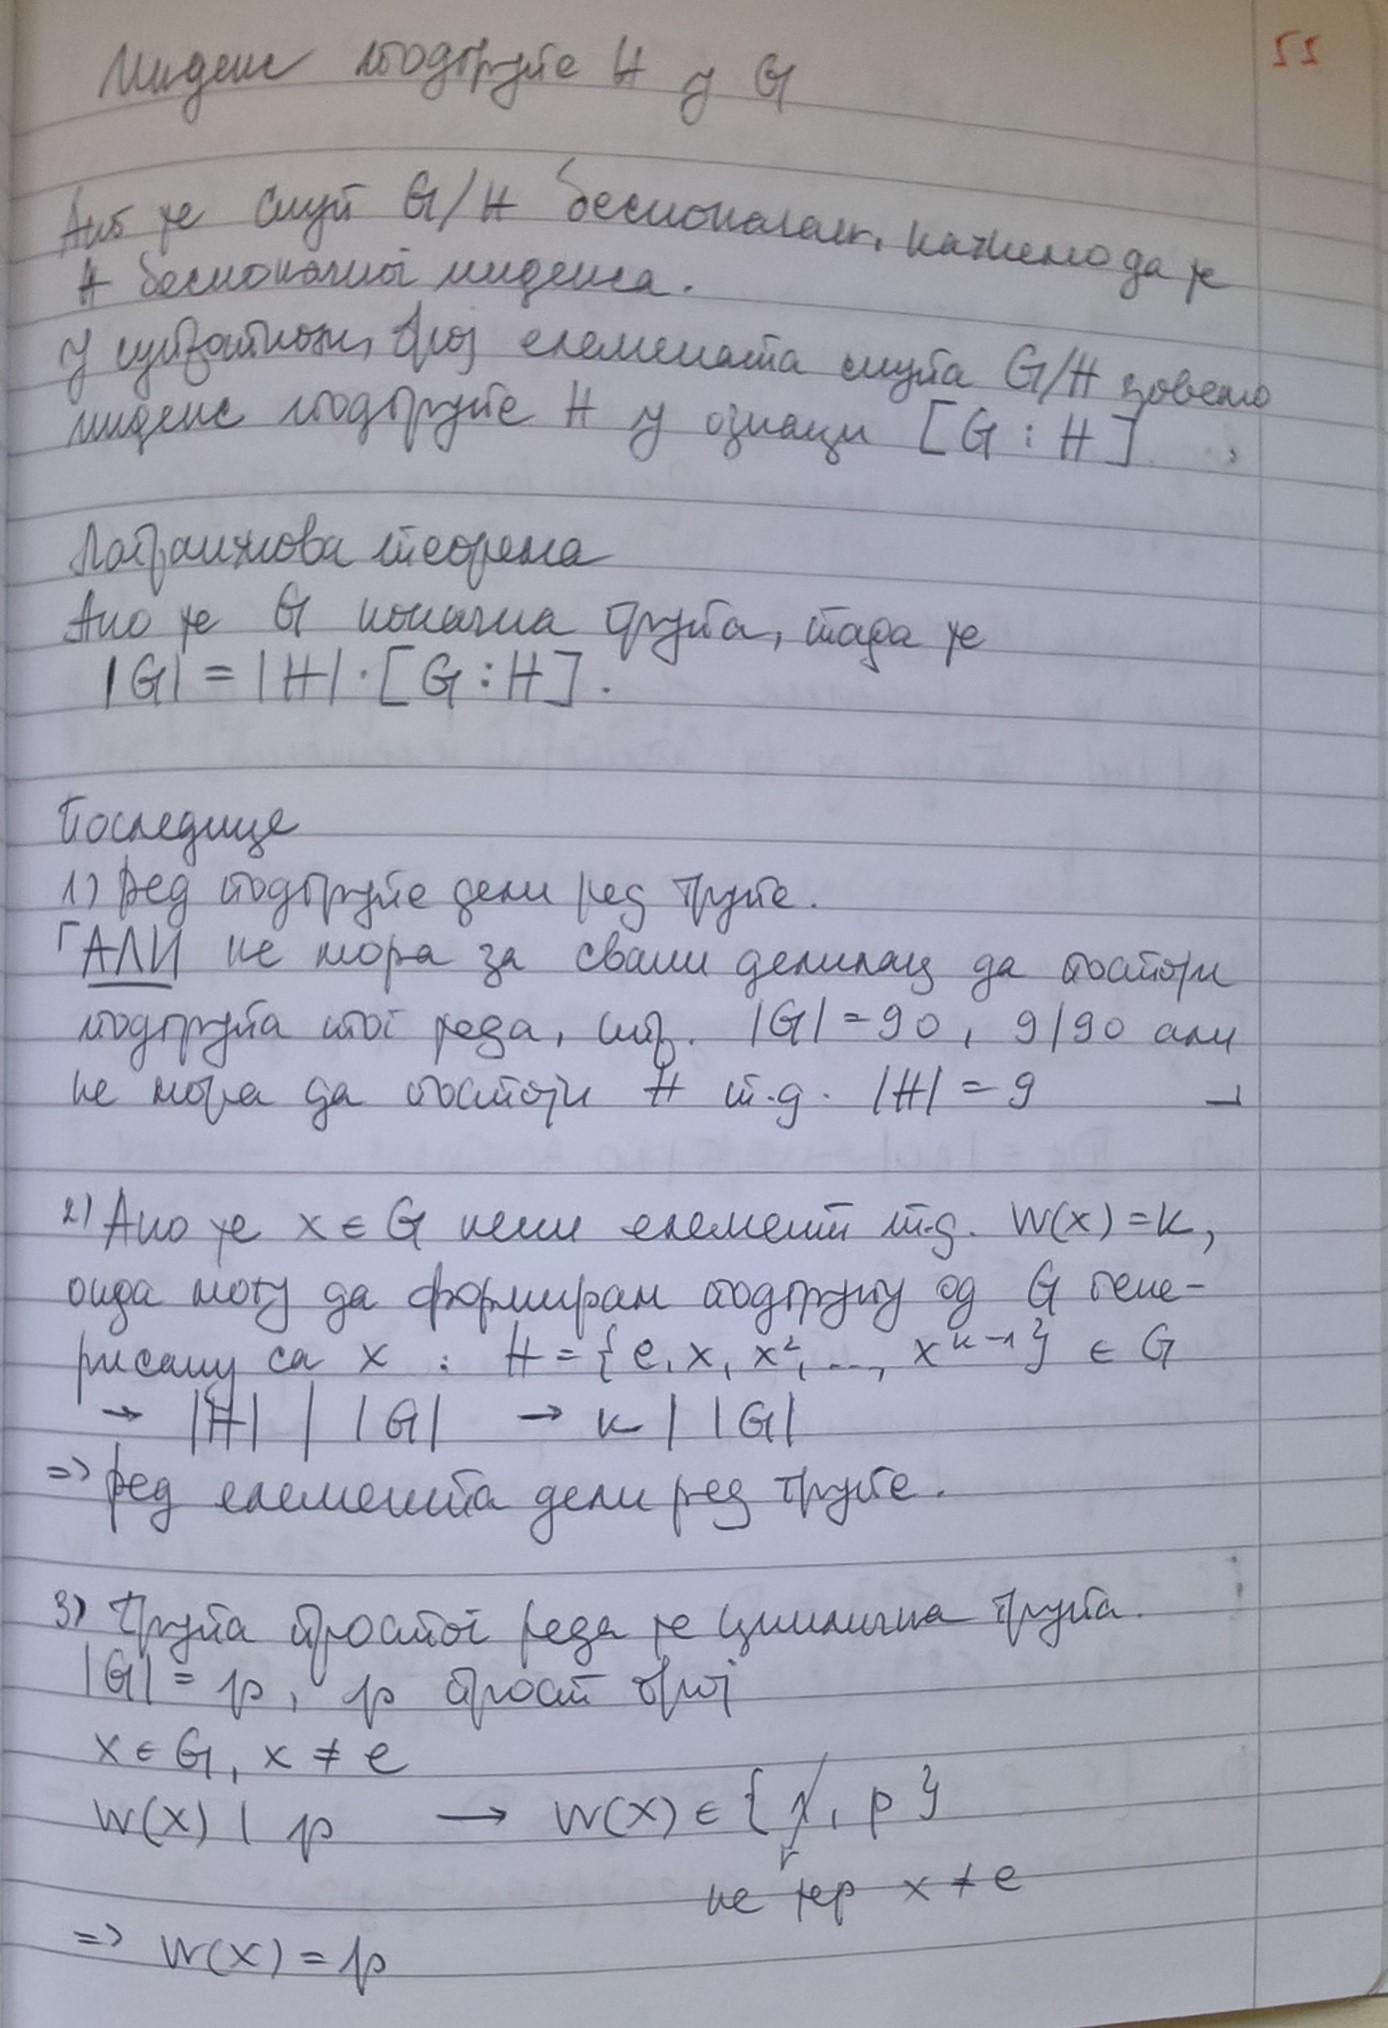 22
Индекс подгрупе H у G
Ако је скуп G/H бесконачан, кажемо да је
H бесконачног индекса.
У супротном, број елемената скупа G/H зовемо
индекс подгрупе H у ознаци [G : H].
Лагранжова теорема
Ако је G коначна група, тада је
|G| = |H| · [G : H].
Последице
1) Ред подгрупе дели ред групе.
⌈АЛИ не мора за сваки делилац да постоји
подгрупа тог реда, нпр. |G| = 90, 9|90 али
не мора да постоји H т.д. |H| = 9 ⌋
2) Ако је x ∈ G неки елемент т.д. w(x) = k,
онда могу да формирам подгрупу од G гене-
рисану са x : H = {e, x, x², ..., xᵏ⁻¹} ∈ G
→ |H| | |G| → k | |G|
=> Ред елемента дели ред групе.
3) Група простог реда је циклична група.
|G| = p, p прост број
x ∈ G, x ≠ e
w(x) | p → w(x) ∈ {1, p}
не јер x ≠ e
=> w(x) = p